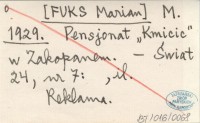 [FUKS Marian] M.
1929. Pensjonat „Kmicic"
w Zakopanem. — Świat
24, nr 7: , il.
Reklama.